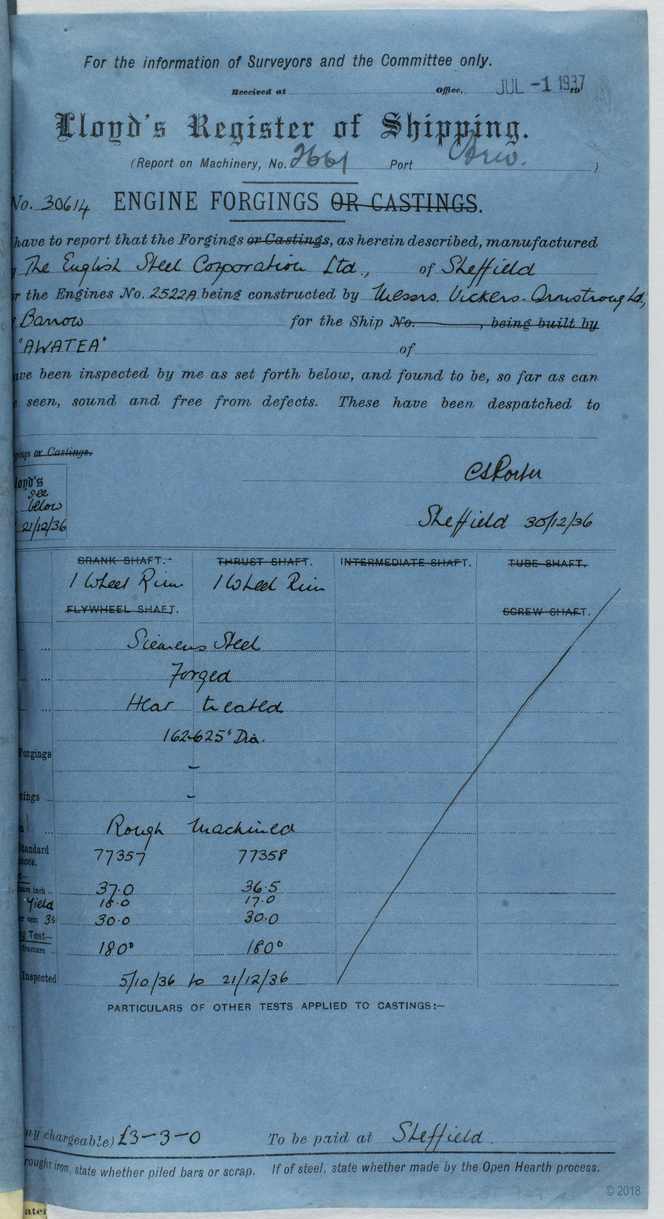 For the information of Surveyors and the Committee only.
Received at Office, JUL -1 1937
Lloyd's Register of Shipping.
(Report on Machinery, No. 2661 Port )
No. 30614 ENGINE FORGINGS OR CASTINGS.
have to report that the Forgings or Castings, as herein described, manufactured
The English Steel Corporation Ltd., of Sheffield
r the Engines No. 2522A being constructed by Messrs. Vickers-Armstrong Ld,
Barrow for the Ship No. , being built by
"AWATEA" of
ave been inspected by me as set forth below, and found to be, so far as can
e seen, sound and free from defects. These have been despatched to
gings or Castings.
loyd's
see
below
21/12/36
CS Porter
Sheffield 30/12/36
CRANK SHAFT. THRUST SHAFT. INTERMEDIATE SHAFT. TUBE SHAFT.
1 Wheel Rim 1 Wheel Rim
FLYWHEEL SHAFT. SCREW SHAFT.
... Siemens Steel
... Forged
... Heat treated
162.625" Dia.
Forgings -
tings ... -
... Rough Machined
tandard
eces. 77357 77358
are inch .. 37.0 36.5
Yield 18.0 17.0
r cent 3½ 30.0 30.0
g Test—
fracture .. 180° 180°
Inspected 5/10/36 to 21/12/36
PARTICULARS OF OTHER TESTS APPLIED TO CASTINGS:—
ny chargeable) £3-3-0 To be paid at Sheffield.
rought iron, state whether piled bars or scrap. If of steel, state whether made by the Open Hearth process.
© 2018
ater